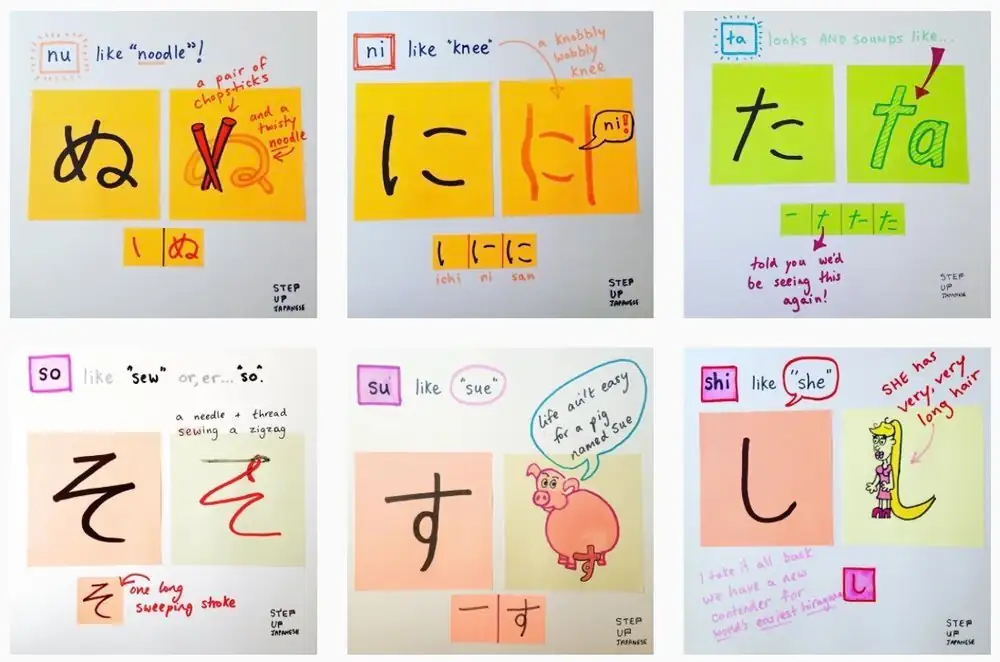 nu like "noodle"!
a pair of
chopsticks
and a
twisty
noodle
ぬ
い ぬ
STEP
UP
JAPANESE
ni like "knee"
a knobbly
wobbly
knee
に
に
ni!
し に に
ichi ni san
STEP
UP
JAPANESE
ta looks AND sounds like...
た
ta
一 ナ た た
told you we'd
be seeing this
again!
STEP
UP
JAPANESE
so like "sew" or, er... "so".
a needle + thread
sewing a zigzag
そ
そ
そ
one long
sweeping stroke
STEP
UP
JAPANESE
su like "sue"
life ain't easy
for a pig
named Sue
す
す
一 す
STEP
UP
JAPANESE
shi like "she"
SHE has
very, very
long hair
し
I take it all back
we have a new
contender for
world's easiest hiragana
し
STEP
UP
JAPANESE